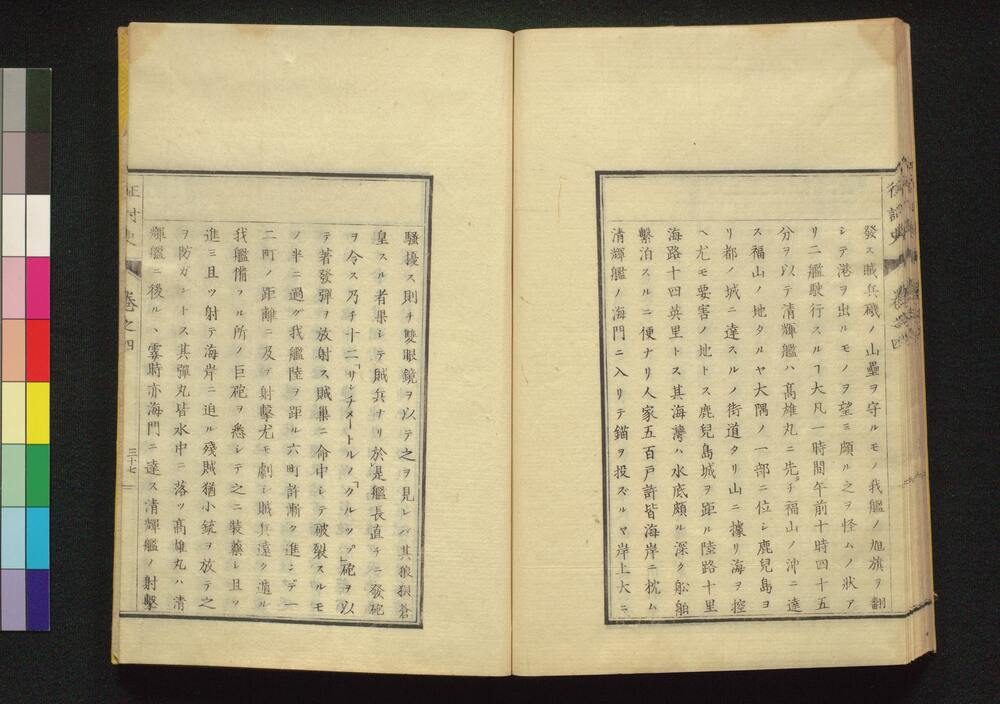 發ス賊兵磯ノ山壘ヲ守ルモノ我艦ノ旭旗ヲ翻
シテ港ヲ出ルモノヲ望ミ頗ル之ヲ怪ムノ狀ア
リ二艦駛行スルヿ大凡一時間午前十時四十五
分ヲ以テ清輝艦ハ高雄丸ニ先チ福山ノ沖ニ達
ス福山ノ地タルヤ大隅ノ一部ニ位シ鹿兒島ヨ
リ都ノ城ニ達スルノ街道タリ山ニ據リ海ヲ控
ヘ尤モ要害ノ地トス鹿兒島城ヲ距ル陸路十里
海路十四英里トス其海灣ハ水底頗ル深ク船舶
繫泊スルニ便ナリ人家五百戸許皆海岸ニ枕ム
清輝艦ノ海門ニ入リテ錨ヲ投ズルヤ岸上大ニ
騷擾ス則チ雙眼鏡ヲ以テ之ヲ見レバ其狼狽倉
皇スル者果シテ賊兵ナリ於是艦長直チニ發砲
ヲ令ス乃チ十二「サンチメートルノ「クルップ」砲ヲ以
テ著發彈ヲ放射ス賊巢ニ命中シテ破裂スルモ
ノ半ニ過グ我艦陸ヲ距ル六町許漸ク進ンデ一
二町ノ距離ニ及ブ射擊尤モ劇シ賊兵遠ク遁ル
我艦備フル所ノ巨砲ヲ悉シテ之ニ裝藥シ且ツ
進ミ且ツ射テ海岸ニ迫ル殘賊猶小銃ヲ放テ之
ヲ防ガントス其彈丸皆水中ニ落ツ高雄丸ハ清
輝艦ニ後ル、霎時亦海門ニ達ス清輝艦ノ射擊
征討史
卷之四
三十七